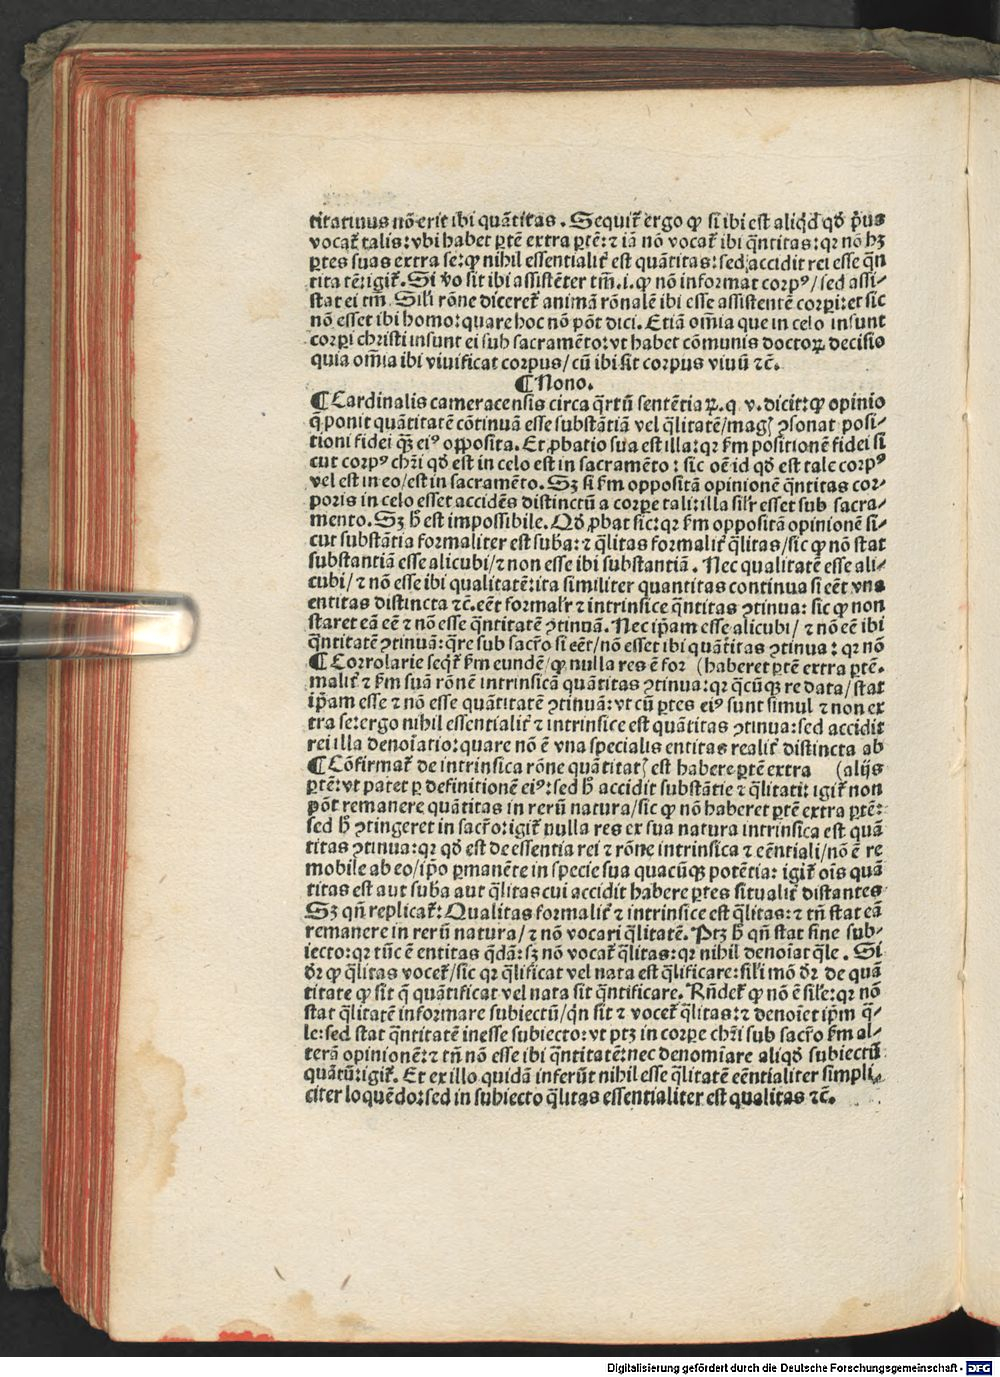 titatiuus nō erit ibi quātitas. Sequit̄ ergo ꝙ si ibi est aliqd̄ qd̄ p̄us
vocat̄ talis: vbi habet ꝑtē extra ꝑtē: ⁊ iā nō vocat̄ ibi q̄ntitas: qꝛ nō hꝫ
ꝑtes suas extra se: ꝙ nihil essentialit̄ est quātitas: sed accidit rei esse q̄n
titatē: igit̄. Si v̄o sit ibi assistēter tm̄ .i. ꝙ nō informat corpꝰ/ sed assi⸗
stat ei tm̄. Sil'i rōne diceret̄ animā rōnalē ibi esse assistentē corpi: et sic
nō esset ibi homo: quare hoc nō pōt dici. Etiā om̄ia que in celo insunt
corpi christi insunt ei sub sacramēto: vt habet cōmunis doctoꝝ decisio
quia om̄ia ibi viuificat corpus/ cū ibi sit corpus viuū ⁊c̄.
¶ Nono.
¶ Cardinalis cameracensis circa q̄rtū sentētiaꝝ .q. v. dicit: ꝙ opinio
q̄ ponit quātitatē cōtinuā esse substātiā vel q̄litatē/ magꝭ ꝯsonat posi⸗
tioni fidei qꝫ eiꝰ opposita. Et ꝓbatio sua est illa: qꝛ ẜm positionē fidei si
cut corpꝰ chr̄i qd̄ est in celo est in sacramēto: sic oē id qd̄ est tale corpꝰ
vel est in eo/ est in sacramēto. Sꝫ si ẜm oppositā opinionē q̄ntitas cor⸗
poris in celo esset accidēs distinctū a corpe tali: illa sil'r esset sub sacra⸗
mento. Sꝫ h̄ est impossibile. Qd̄ ꝓbat sic: qꝛ ẜm oppositā opinionē si⸗
cut substātia formaliter est suba: ⁊ q̄litas formalit̄ q̄litas/ sic ꝙ nō stat
substantiā esse alicubi/ ⁊ non esse ibi substantiā. Nec qualitatē esse ali⸗
cubi/ ⁊ nō esse ibi qualitatē: ita similiter quantitas continua si eēt vna
entitas distincta ⁊c̄. eēt formal'r ⁊ intrinsice q̄ntitas ꝯtinua: sic ꝙ non
staret eā eē ⁊ nō esse q̄ntitatē ꝯtinuā. Nec ip̄am esse alicubi/ ⁊ nō eē ibi
q̄ntitatē ꝯtinuā: q̄re sub sacr̄o si eēt/ nō esset ibi quātitas ꝯtinua: qꝛ nō
¶ Corrolarie seqt̄ ẜm eundē/ ꝙ nulla res ē for (haberet ꝑtē extra ꝑtē.
malit̄ ⁊ ẜm suā rōnē intrinsicā quātitas ꝯtinua: qꝛ q̄cūqꝫ re data/ stat
ip̄am esse ⁊ nō esse quātitatē ꝯtinuā: vt cū ꝑtes eiꝰ sunt simul ⁊ non ex
tra se: ergo nihil essentialit̄ ⁊ intrinsice est quātitas ꝯtinua: sed accidit
rei illa denoīatio: quare nō ē vna specialis entitas realit̄ distincta ab
¶ Cōfirmat̄ de intrinsica rōne quātitatꝭ est habere ꝑtē extra (alijs
ꝑtē: vt patet ꝑ definitionē eiꝰ: sed h̄ accidit substātie ⁊ q̄litati: igit̄ non
pōt remanere quātitas in rerū natura/ sic ꝙ nō haberet ꝑtē extra ꝑtē:
sed h̄ ꝯtingeret in sacr̄o: igit̄ nulla res ex sua natura intrinsica est quā
titas ꝯtinua: qꝛ qd̄ est de essentia rei ⁊ rōne intrinsica ⁊ eēntiali/ nō ē re
mobile ab eo/ ip̄o ꝑmanēte in specie sua quacūqꝫ potētia: igit̄ oīs quā
titas est aut suba aut q̄litas cui accidit habere ꝑtes situalit̄ distantes
Sꝫ qn̄ replicat̄: Qualitas formalit̄ ⁊ intrinsice est q̄litas: ⁊ tn̄ stat eā
remanere in rerū natura/ ⁊ nō vocari q̄litatē. Ptꝫ h̄ qn̄ stat sine sub⸗
iecto: qꝛ tūc ē entitas q̄dā: sꝫ nō vocat̄ q̄litas: qꝛ nihil denoīat q̄le. Si
dr̄ ꝙ q̄litas vocet̄/ sic qꝛ q̄lificat vel nata est q̄lificare: sil'i mō dr̄ de quā
titate ꝙ sit q̄ quātificat vel nata sit q̄ntificare. Rn̄det̄ ꝙ nō ē sil'e: qꝛ nō
stat q̄litatē informare subiectū/ qn̄ sit ⁊ vocet̄ q̄litas: ⁊ denoīet ip̄m q̄⸗
le: sed stat q̄ntitatē inesse subiecto: vt ptꝫ in corpe chr̄i sub sacr̄o ẜm al⸗
terā opinionē: ⁊ tn̄ nō esse ibi q̄ntitatē: nec denomīare aliqd̄ subiectū
quātū: igit̄. Et ex illo quidā inferūt nihil esse q̄litatē eēntialiter simpli⸗
citer loquēdo: sed in subiecto q̄litas essentialiter est qualitas ⁊c̄.
Digitalisierung gefördert durch die Deutsche Forschungsgemeinschaft - DFG